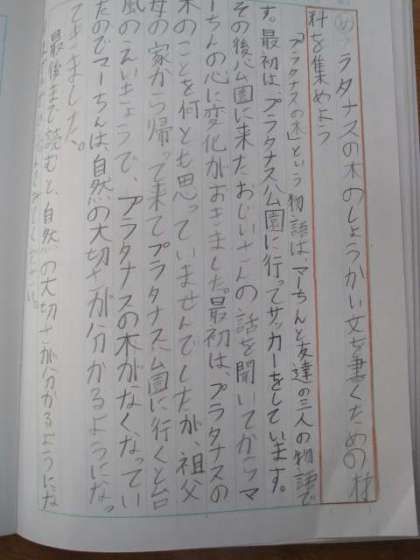 ㋱プラタナスの木のしょうかい文を書くための材
料を集めよう
「プラタナスの木」という物語は、マーちんと友達の三人の物語で
す。最初は、プラタナス公園に行ってサッカーをしています。
その後公園に来たおじいさんの話を聞いてからマ
ーちんの心に変化がおきました。最初は、プラタナスの
木のことを何とも思っていませんでしたが、祖父
母の家から帰って来てプラタナス公園に行くと台
風のえいきょうで、プラタナスの木がなくなってい
たのでマーちんは、自然の大切さが分かるようになっ
てきました。
最後まで読むと、自然の大切さが分かるようにな